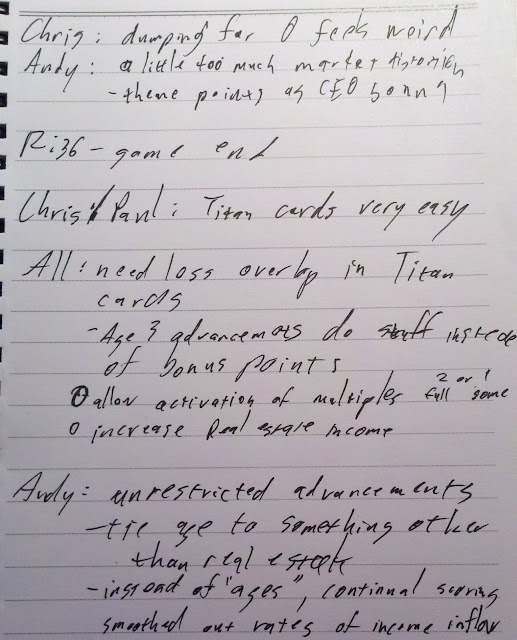 Chris: dumping for 0 feels weird
Andy: a little too much market distortion
- theme points as CEO bonus
- game end
Chris / Paul: Titan cards very easy
All: need less overlap in Titan
cards
- Age 3 advancements do stuff instead
of bonus points
0 allow activation of multiples full 2 or 1 some
0 increase Real estate income
Andy: unrestricted advancements
- tie age to something other
than real estate
- instead of "ages", continual scoring
smoothed out rates of income inflow